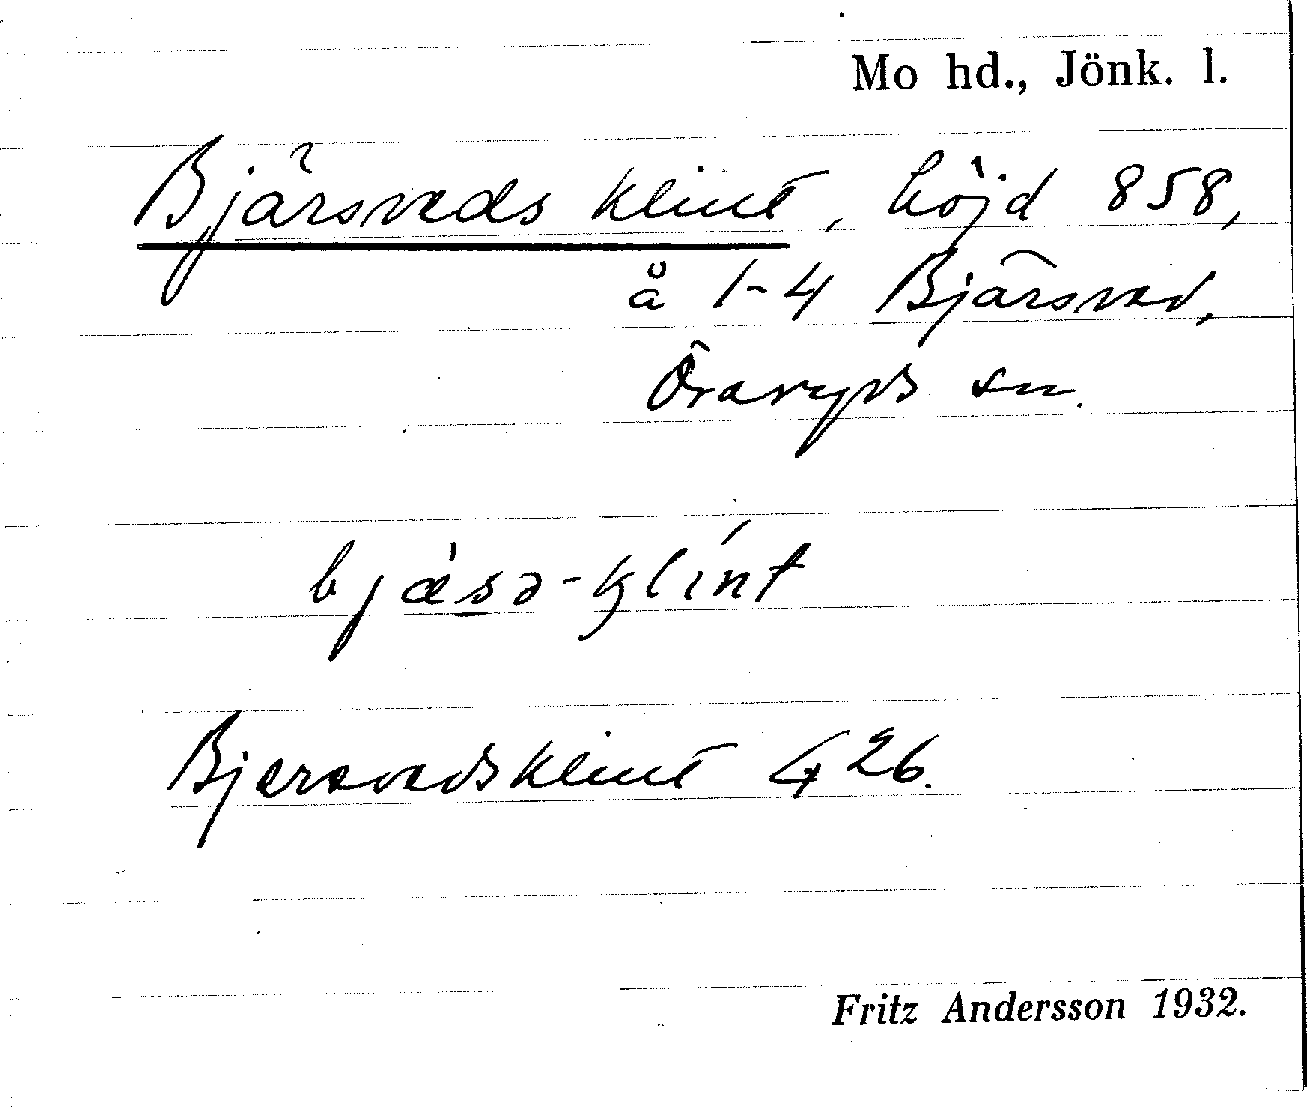 Mo hd., Jönk. l.
Bjärsveds klint, höjd 858,
å 1-4 Bjärsved,
Öraryds sn.
bjæ̀sə-klínt
Bjersvedsklint 426.
Fritz Andersson 1932.